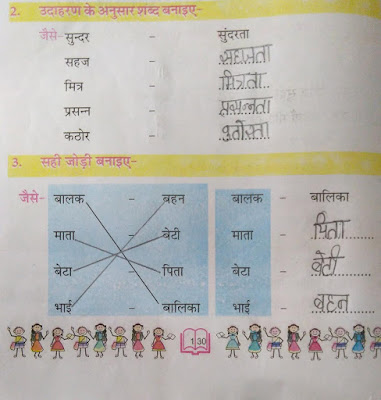 2. उदाहरण के अनुसार शब्द बनाइए-
जैसे- सुन्दर - सुंदरता
सहज - सहजता
मित्र - मित्रता
प्रसन्न - प्रसन्नता
कठोर - कठोरता
3. सही जोड़ी बनाइए-
जैसे- बालक - बहन बालक - बालिका
माता - बेटी माता - पिता
बेटा - पिता बेटा - बेटी
भाई - बालिका भाई - बहन
130